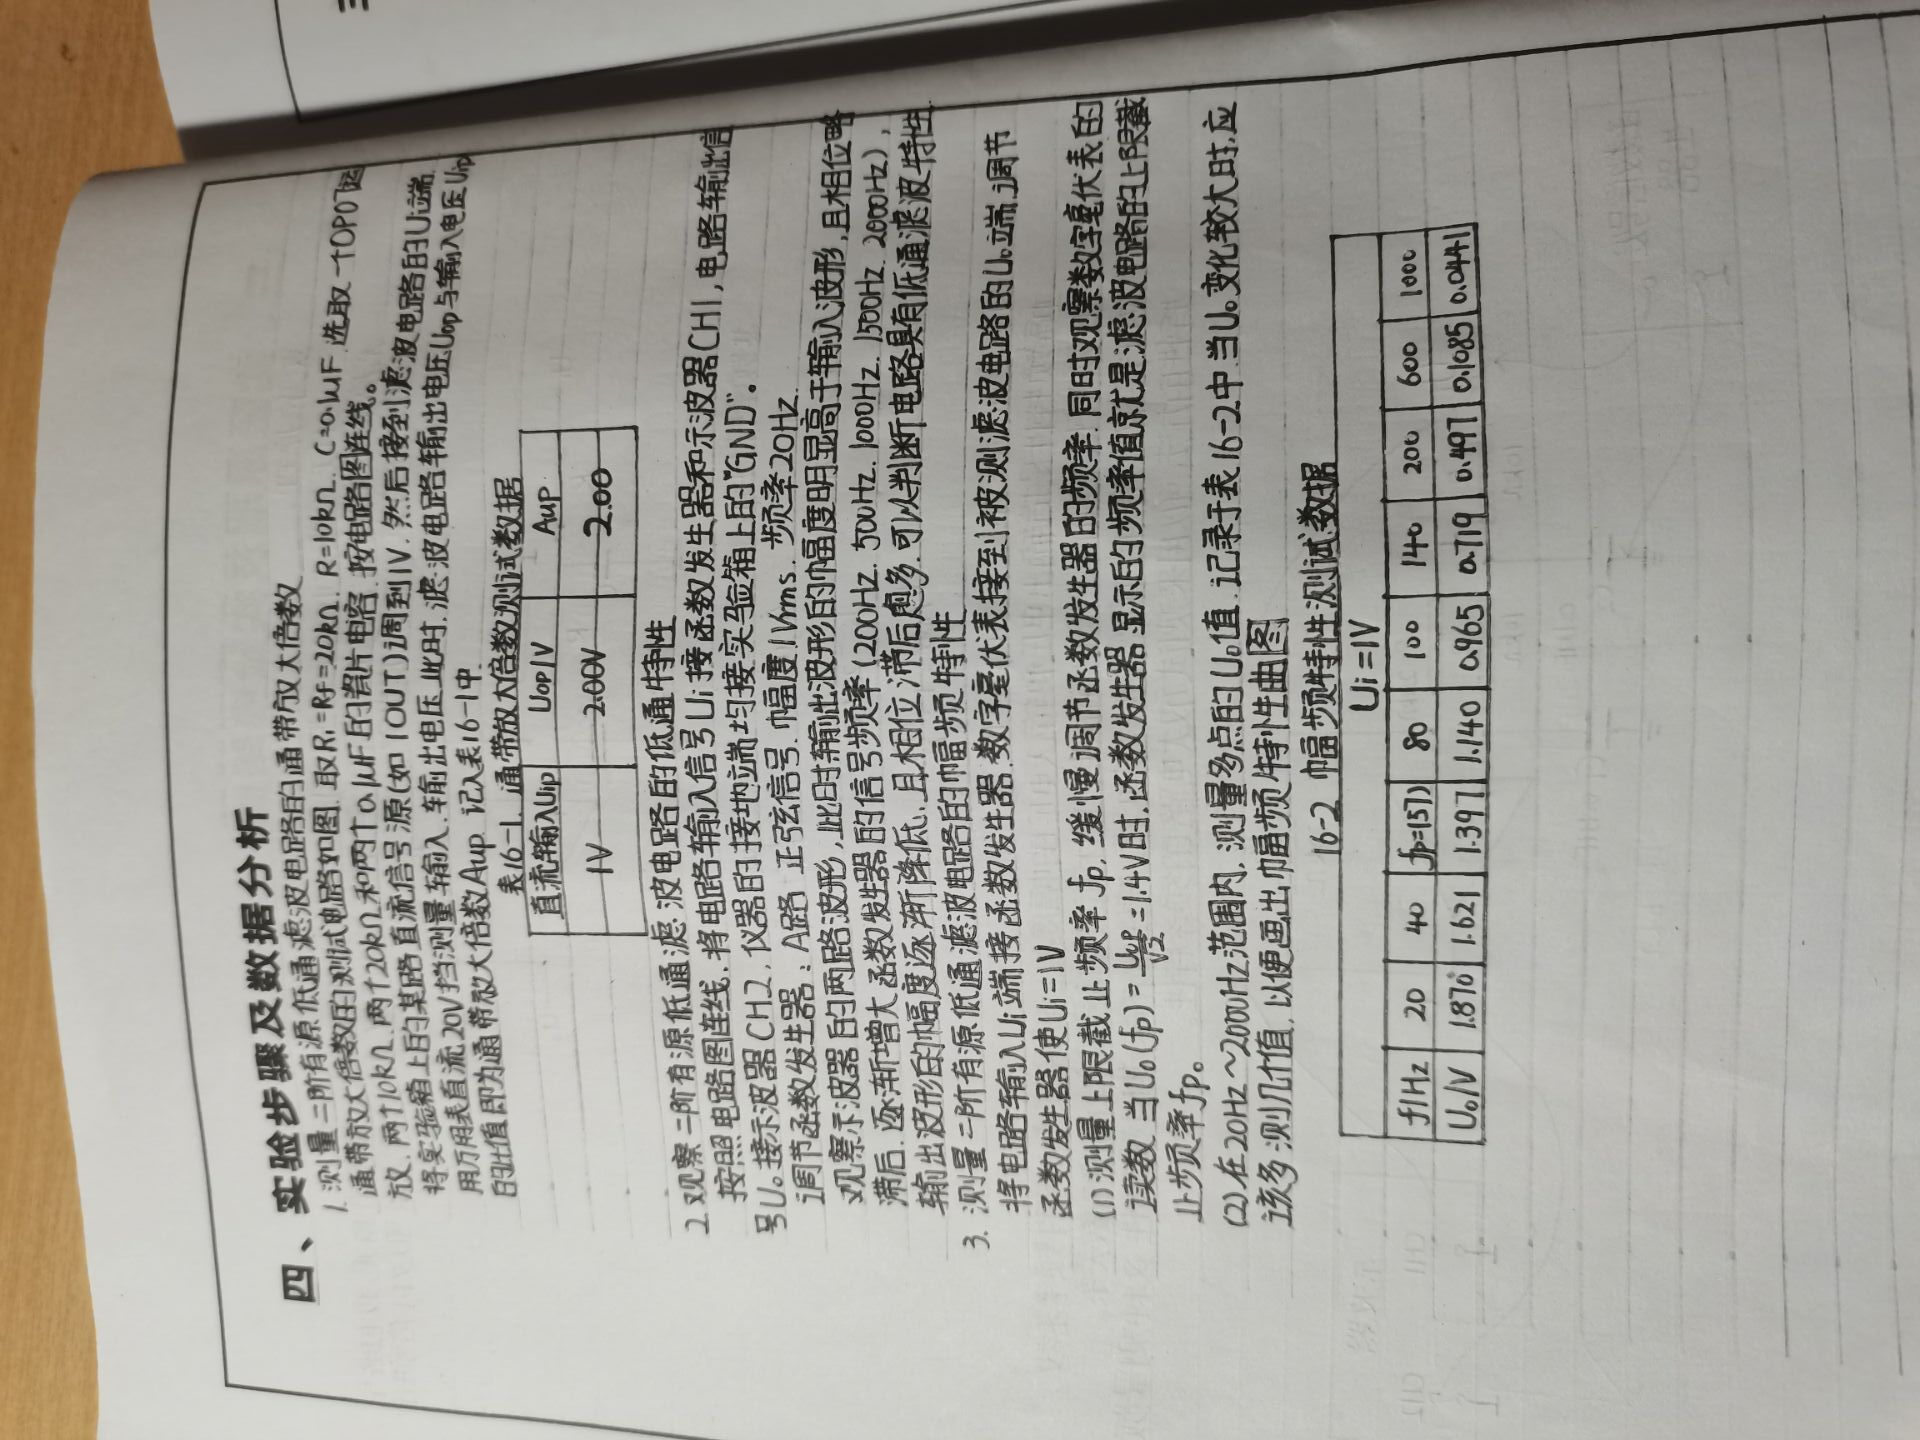 四、实验步骤及数据分析
1. 测量二阶有源低通滤波电路的通带放大倍数
通带放大倍数的测试电路如图. 取R₁=Rf=20kΩ. R=10kΩ. C=0.1μF. 选取一个OP07运
放. 两个10kΩ. 两个20kΩ和两个0.1μF的瓷片电容. 按电路图连线。
将实验箱上的某路直流信号源(如1OUT)调到1V. 然后接到滤波电路的Ui端.
用万用表直流20V挡测量输入. 输出电压. 此时. 滤波电路输出电压Uop与输入电压Uip
的比值即为通带放大倍数Aup. 记入表16-1中.
表16-1. 通带放大倍数测试数据
直流输入Uip Uop/V Aup
1V 2.00V 2.00
2. 观察二阶有源低通滤波电路的低通特性
按照电路图连线. 将电路输入信号Ui接函数发生器和示波器CH1, 电路输出信
号U₀接示波器CH2, 仪器的接地端均接实验箱上的"GND"。
调节函数发生器: A路 正弦信号. 幅度1Vrms. 频率20Hz.
观察示波器的两路波形, 此时输出波形的幅度明显高于输入波形, 且相位略
滞后. 逐渐增大函数发生器的信号频率(200Hz. 500Hz. 1000Hz. 1500Hz. 2000Hz),
输出波形的幅度逐渐降低. 且相位滞后愈多. 可以判断电路具有低通滤波特性.
3. 测量二阶有源低通滤波电路的幅频特性
将电路输入Ui端接函数发生器. 数字毫伏表接到被测滤波电路的U₀端. 调节
函数发生器使Ui=1V
(1) 测量上限截止频率fp. 缓慢调节函数发生器的频率. 同时观察数字毫伏表的
读数. 当U₀(fp)=Uop/√2=1.4V时. 函数发生器显示的频率值就是滤波电路的上限截
止频率fp。
(2) 在20Hz~2000Hz范围内. 测量多点的U₀值. 记录于表16-2中. 当U₀变化较大时, 应
该多测几个值. 以便画出幅频特性曲图
16-2 幅频特性测试数据
Ui=1V
f/Hz 20 40 fp=(57) 80 100 140 200 600 1000
U₀/V 1.870 1.621 1.397 1.140 0.965 0.719 0.497 0.1085 0.0441